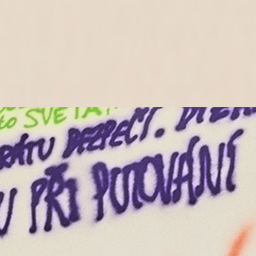 to SVĚTA
RÁTU BEZPEČÍ.
PŘI PUTOVÁNÍ